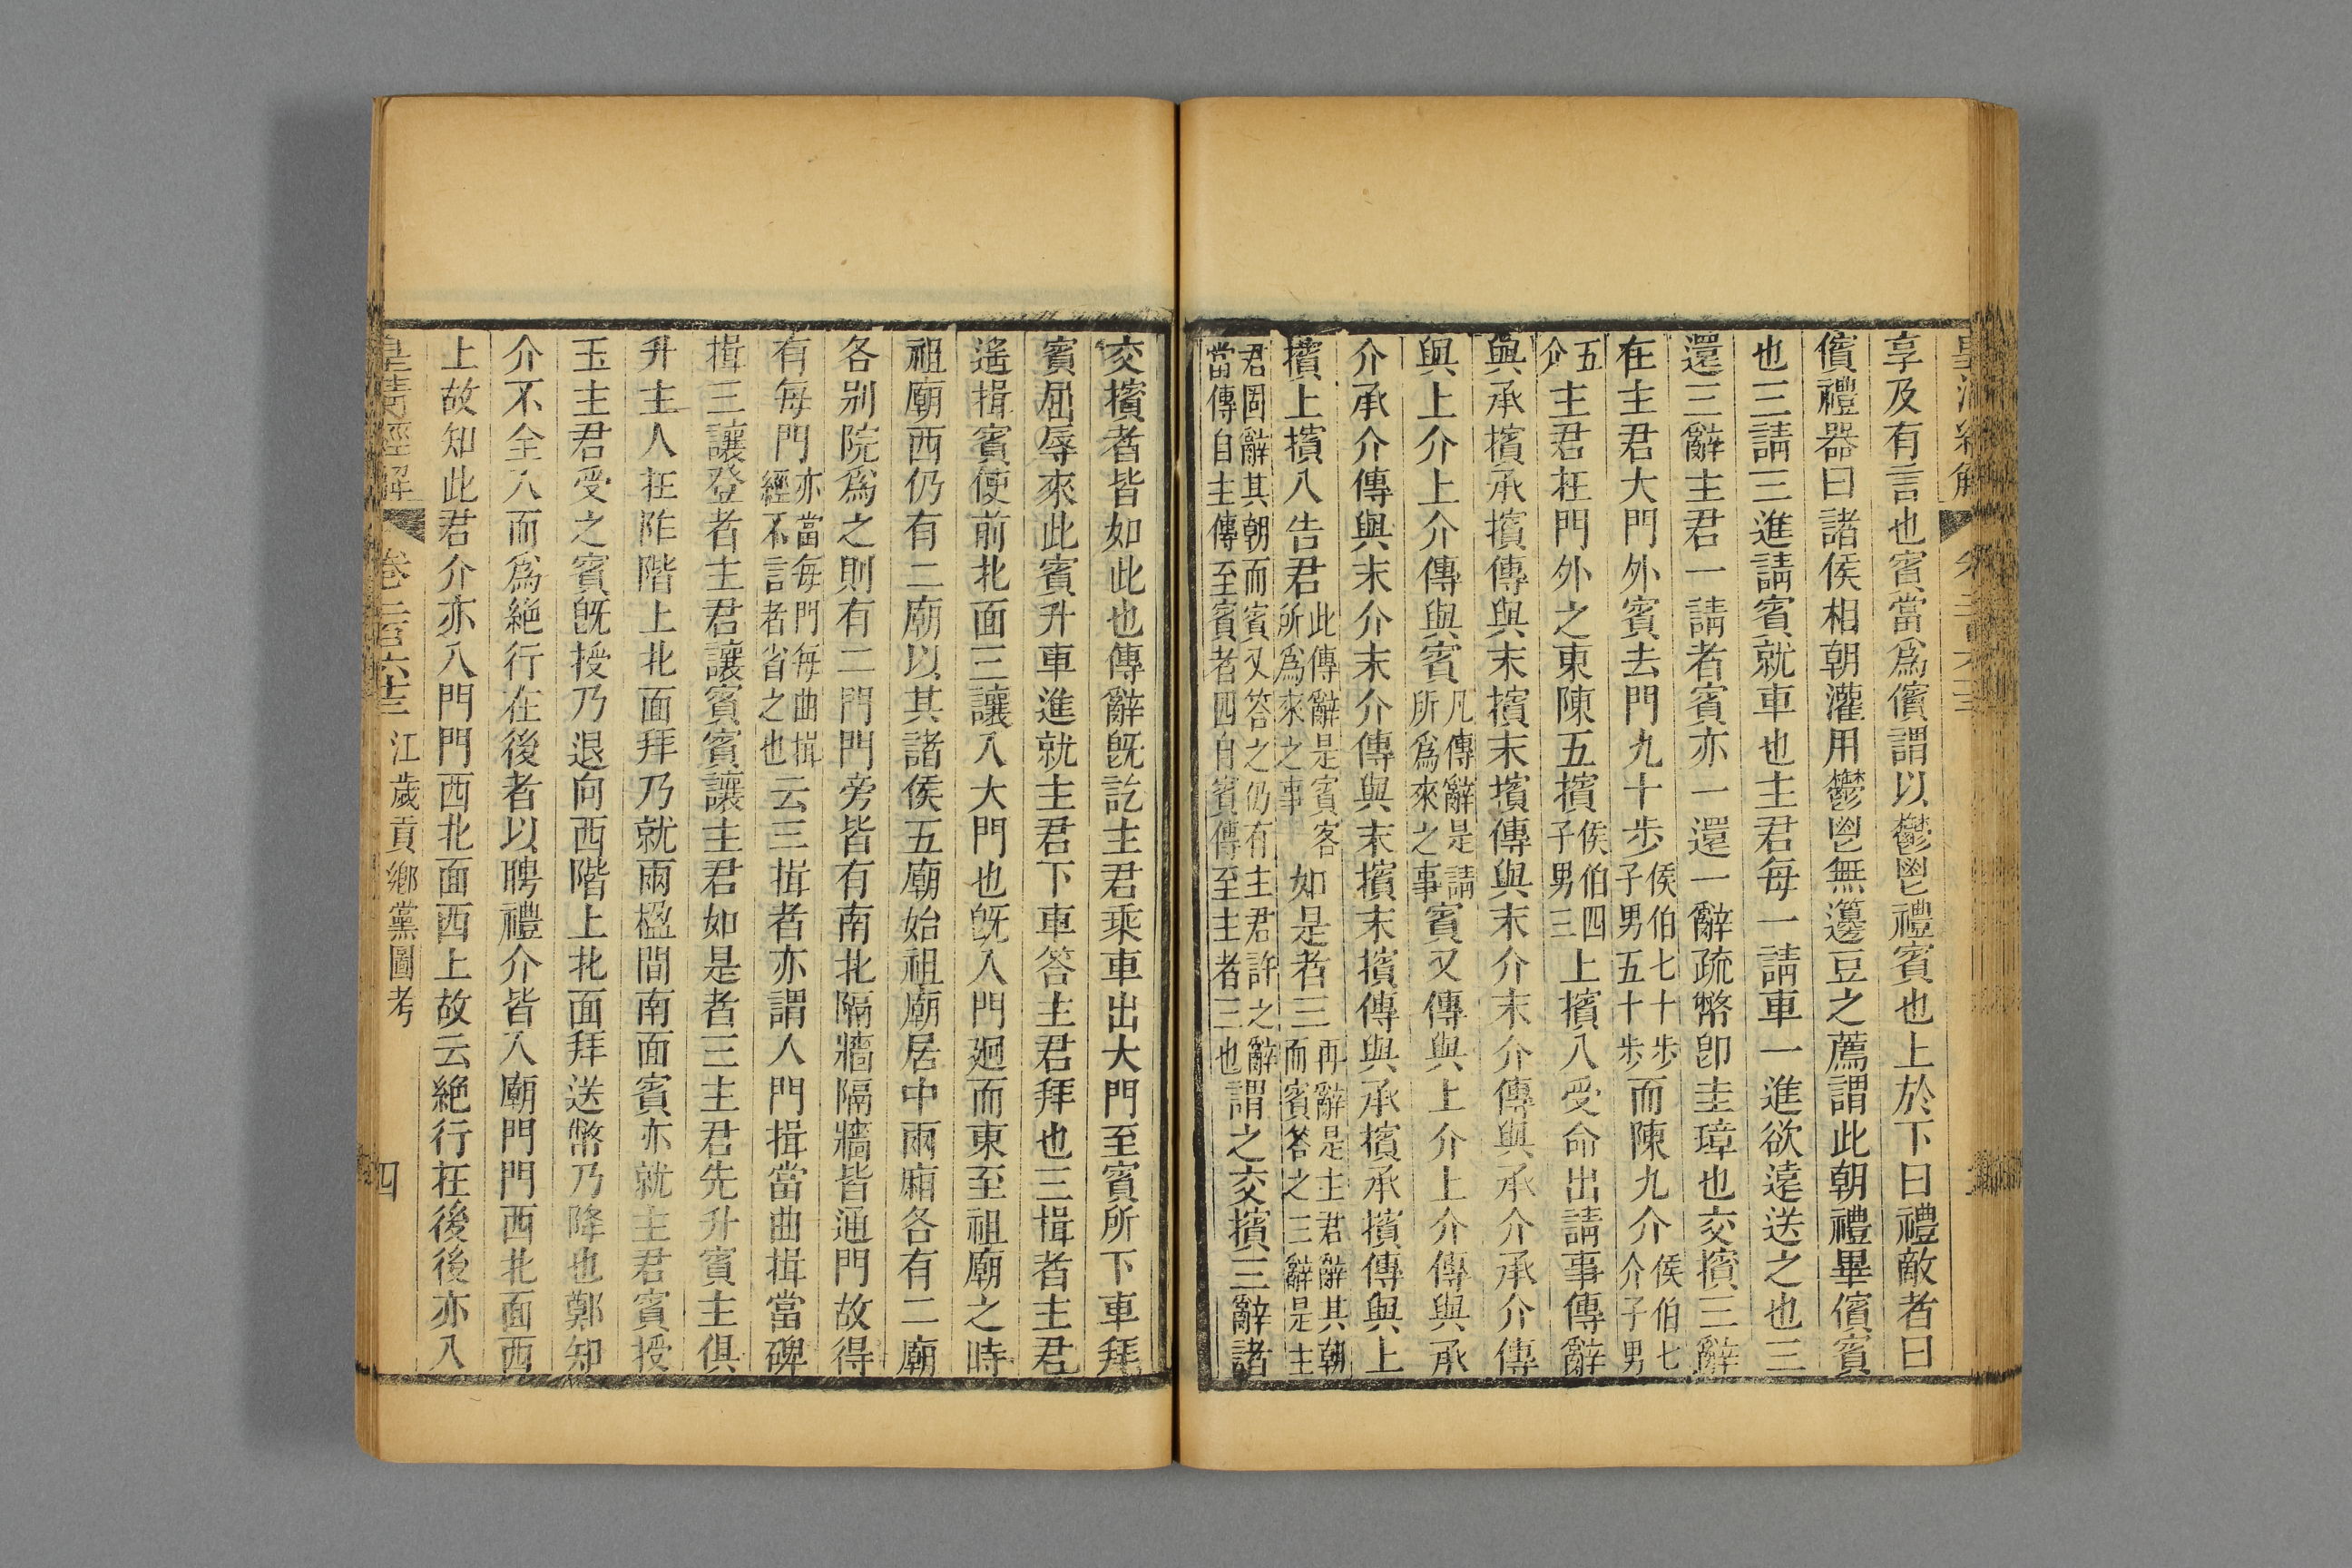 享及有言也賓當爲儐謂以鬱鬯禮賓也上於下曰禮敵者曰
儐禮器曰諸侯相朝灌用鬱鬯無籩豆之薦謂此朝禮畢儐賓
也三請三進請賓就車也主君每一請車一進欲遠送之也三
還三辭主君一請者賓亦一還一辭疏幣卽圭璋也交擯三辭
在主君大門外賓去門九十步侯伯七十步子男五十步而陳九介侯伯七介子男
五介主君在門外之東陳五擯侯伯四子男三上擯入受命出請事傳辭
與承擯承擯傳與末擯末擯傳與末介末介傳與承介承介傳
與上介上介傳與賓凡傳辭是請所爲來之事賓又傳與上介上介傳與承
介承介傳與末介末介傳與末擯末擯傳與承擯承擯傳與上
擯上擯入告君此傳辭是賓客所爲來之事如是者三再辭是主君辭其朝而賓答之三辭是主
君固辭其朝而賓又答之仍有主君許之辭當傳自主傳至賓者四自賓傳至主者三也謂之交擯三辭諸
交擯者皆如此也傳辭旣訖主君乘車出大門至賓所下車拜
賓屈辱來此賓升車進就主君下車答主君拜也三揖者主君
遙揖賓使前北面三讓入大門也旣入門迴而東至祖廟之時
祖廟西仍有二廟以其諸侯五廟始祖廟居中兩廂各有二廟
各別院爲之則有二門門旁皆有南北隔牆隔牆皆通門故得
有每門亦當每門每曲揖經不言者省之也云三揖者亦謂入門揖當曲揖當碑
揖三讓登者主君讓賓賓讓主君如是者三主君先升賓主俱
升主人在阼階上北面拜乃就兩楹間南面賓亦就主君賓授
玉主君受之賓旣授乃退向西階上北面拜送幣乃降也鄭知
介不全入而爲絶行在後者以聘禮介皆入廟門門西北面西
上故知此君介亦入門門西北面西上故云絶行在後後亦入
皇清經解 卷二百六十三 江歲貢鄉黨圖考 四